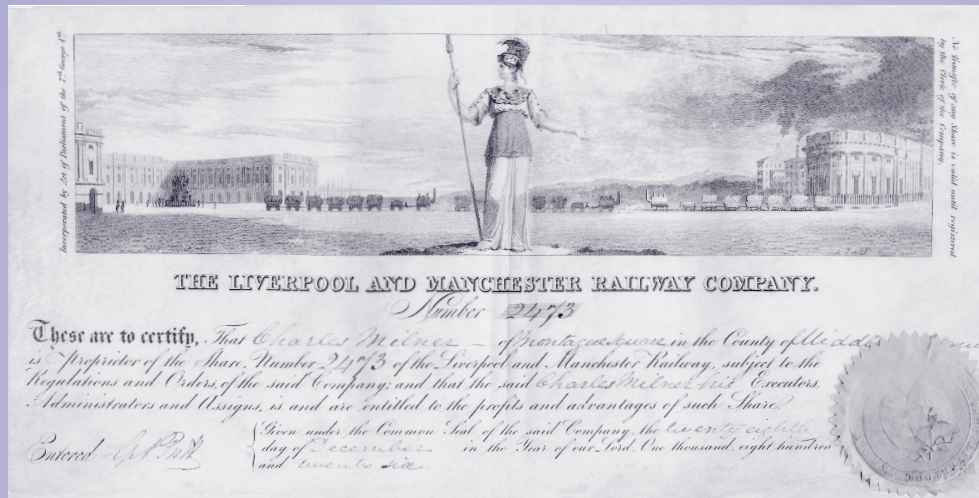 Incorporated by Act of Parliament of the 7th George 4th
No Transfer of any Share is valid until registered
by the Clerk of the Company.
THE LIVERPOOL AND MANCHESTER RAILWAY COMPANY.
Number 2473
These are to certify, That Charles Milner – of Montague Square in the County of
is Proprietor of the Share, Number 2473 of the Liverpool and Manchester Railway, subject to the
Regulations and Orders, of the said Company; and that the said Charles Milner his Executors,
Administrators and Assigns, is and are entitled to the profits and advantages of such Share.
Given under the Common Seal of the said Company, the twenty eighth
Entered day of December in the Year of our Lord, One thousand, eight hundred
and twenty six.